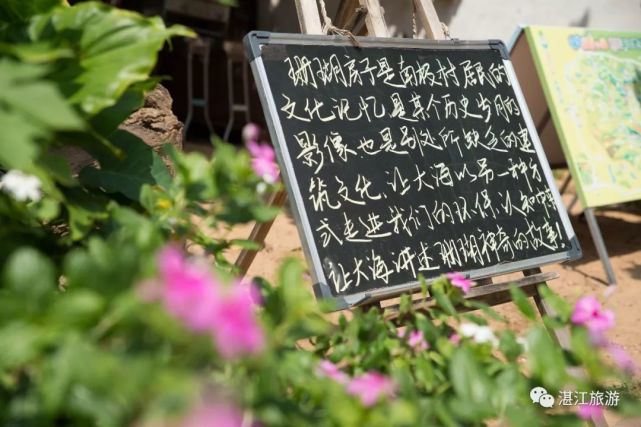 珊瑚房子是南极村居民的
文化记忆,是某个历史岁月的
影像,也是别处所缺乏的建
筑文化,让大海以另一种方
式走进我们的环保认知中
让大海讲述珊瑚神奇的故事!
湛江旅游